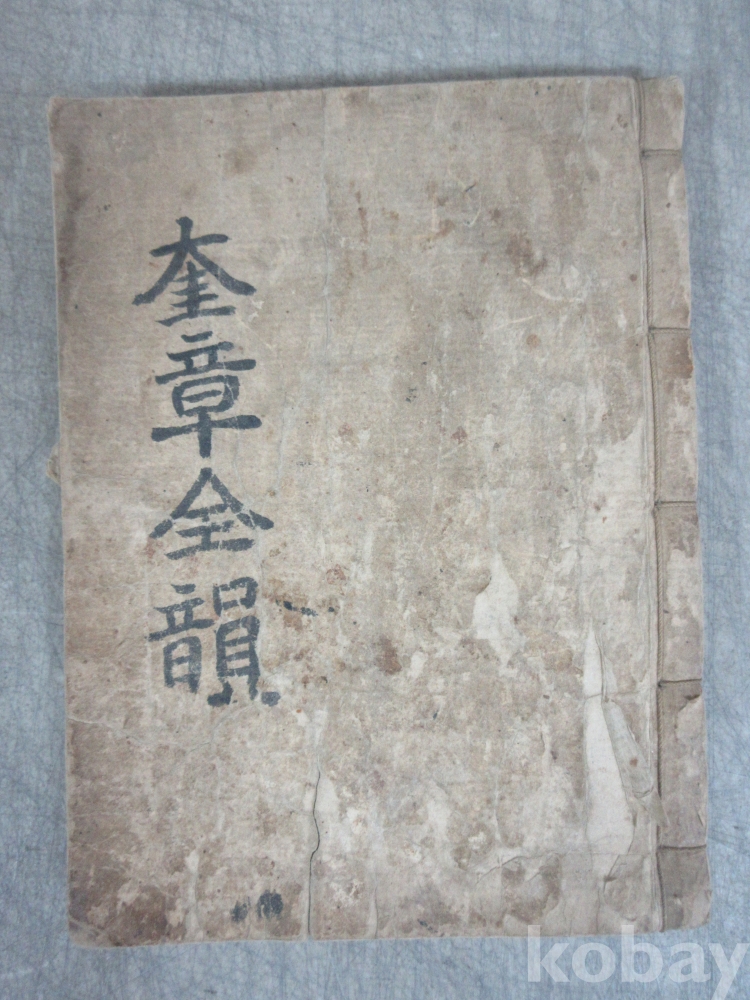 奎章全韻
kobay